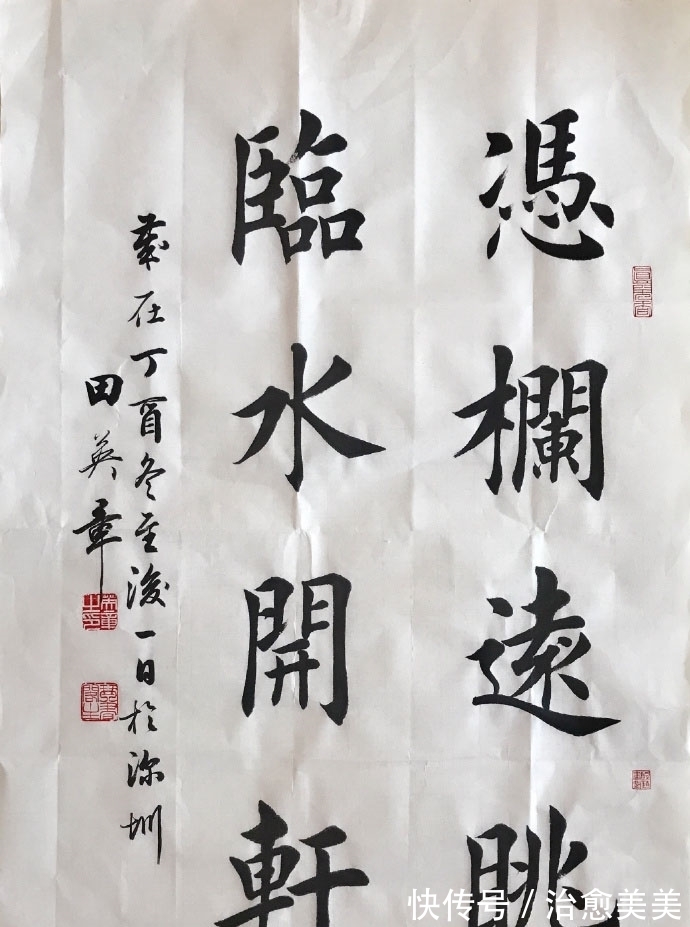 憑欄遠眺
臨水開軒
歲在丁酉冬至後一日於深圳
田英章
快传号/治愈美美